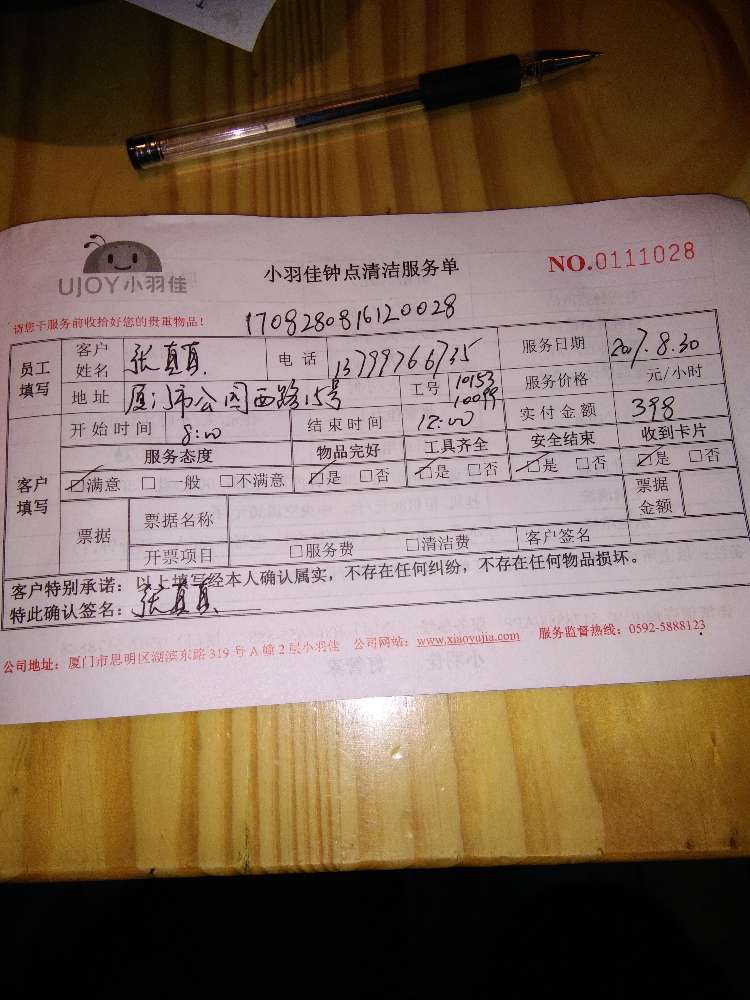 UJOY小羽佳
小羽佳钟点清洁服务单
NO.0111028
请您于服务前收拾好您的贵重物品！
1708280816120028
员工填写 客户姓名 张真真 电话 13799766735 服务日期 2017.8.30
地址 厦门市公园西路15号 工号 10153 10099 服务价格 元/小时
客户填写 开始时间 8:00 结束时间 12:00 实付金额 398
服务态度 物品完好 工具齐全 安全结束 收到卡片
☑满意 □一般 □不满意 ☑是 □否 ☑是 □否 ☑是 □否 ☑是 □否
票据 票据名称 票据金额
开票项目 □服务费 □清洁费 客户签名
客户特别承诺：以上填写经本人确认属实，不存在任何纠纷，不存在任何物品损坏。
特此确认签名：张真真
公司地址：厦门市思明区湖滨东路319号A幢2层小羽佳 公司网站：www.xiaoyujia.com 服务监督热线：0592-5888123